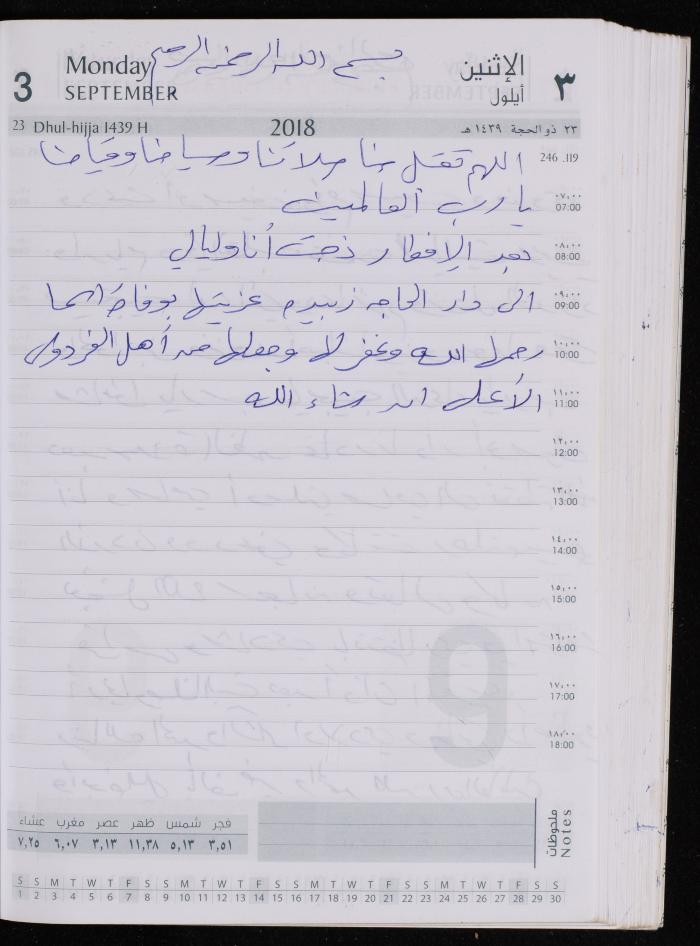 بسم الله الرحمن الرحيم
3 Monday SEPTEMBER الإثنين أيلول ٣
23 Dhul-hijja 1439 H 2018 ٢٣ ذو الحجة ١٤٣٩ هـ
اللهم تقبل منا صلاتنا وصيامنا وقيامنا 246 .119
يا رب العالمين ٠٧,٠٠ 07:00
بعد الإفطار ذهبت أنا وليالي ٠٨,٠٠ 08:00
الى دار الحاجه زبيده عزيتها بوفاة ٠٩,٠٠ 09:00
رحمها الله وغفر لها وجعلها من أهل الفردوس ١٠,٠٠ 10:00
الأعلى ان شاء الله ١١,٠٠ 11:00
١٢,٠٠ 12:00
١٣,٠٠ 13:00
١٤,٠٠ 14:00
١٥,٠٠ 15:00
١٦,٠٠ 16:00
١٧,٠٠ 17:00
١٨,٠٠ 18:00
فجر شمس ظهر عصر مغرب عشاء
٣,٥١ ٥,١٣ ١١,٣٨ ٣,١٣ ٦,٠٧ ٧,٢٥
ملحوظات Notes
S S M T W T F S S M T W T F S S M T W T F S S M T W T F S S
1 2 3 4 5 6 7 8 9 10 11 12 13 14 15 16 17 18 19 20 21 22 23 24 25 26 27 28 29 30